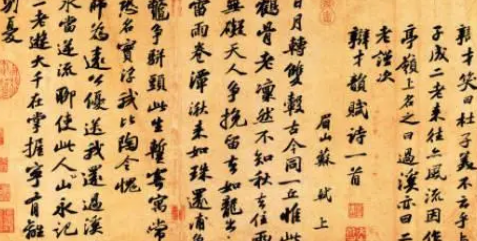 辯才笑曰杜子美不云乎與
子成二老来往亦風流因作
亭嶺上名之曰過溪亦曰二
老謹次
辯才韻賦詩一首
眉山蘇軾上
日月轉雙轂古今同一丘惟此
鶴骨老凛然不知秋去住兩
無礙天人争挽留去如龍出
雷雨卷潭湫来如珠還浦魚
鼈争駢頭此生蹔寄寓常
恐名實浮我比陶令愧
師為遠公優送我還過溪
水當逆流聊使此人山永記
二老遊大千在掌握寧有離
別憂